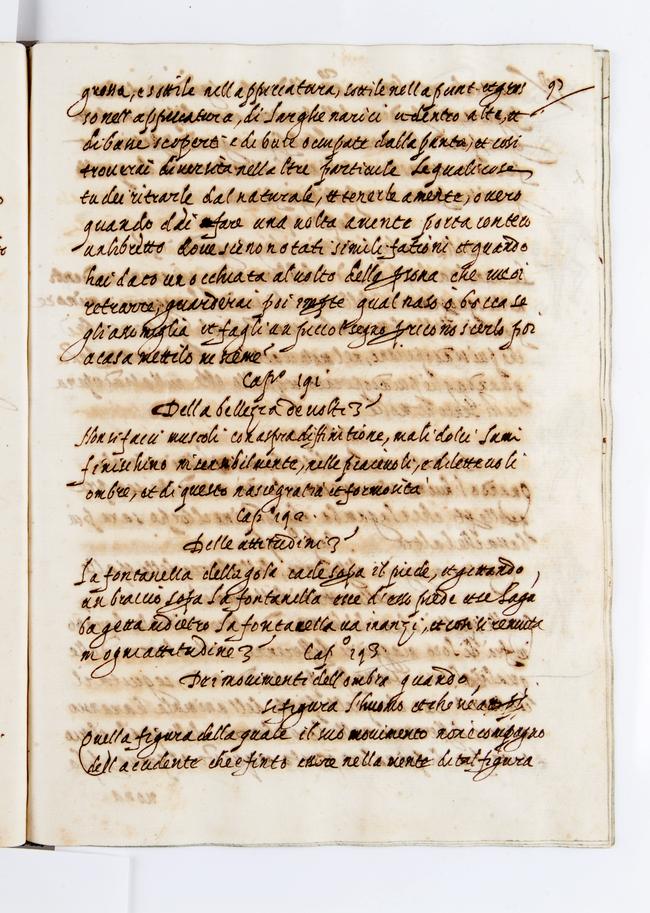 grossa, e sottile nell appiccatura, sottile nella punt. et gros
so nell appiccatura, di Larghe narici et dentro alte, et
di basse scoperti e di bute occupate dalla panta, et cosi
trouvrai diversità nelle altre particule le quali cose
tu dei ritrarle dal naturale, et tenerle a mente, overo
quando dai fare una volta a mente porta con teco
un libretto dove sieno notati simili fationi et quando
hai dato un occhiata al volto della psona che vuoi
retrarre, guarderai poi in pte qual naso o bocca se
gli asomiglia et fagli un piccol segno p riconoscerlo poi
a casa mettilo in sieme
Cap.º 191
Della bellezza de volti
Non si facci muscoli con aspra diffinitione, ma li dolci Lumi
finischino insensibilmente, nelle piacevoli, e dilettevoli
ombre, et di questo nasce gratia et formosita
Cap.º 192.
Delle attitudini
La fontanella della gola cade sopa il piede, et gittando
un braccio sopa La fontanella esce d'esso piede et se La ga
ba getta indietro La fontanella va inanzi, et cosi si remuta
in ogni attitudine Cap.º 193
Dei movimenti dell ombra quando
si figura l'huomo et che ne
Quella figura della quale il suo movimento non e compagno
dell accidente che e finto essere nella mente di tal figura